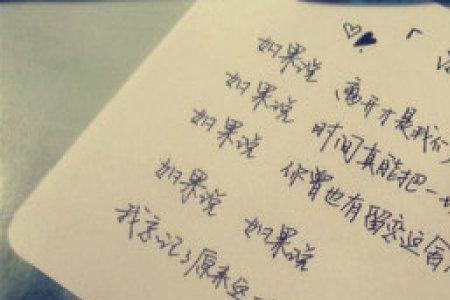 「
如果说 离开才是我们
如果说 时间真能把一切
如果说 你曾也有留恋这
如果说 如果说
我忘记了原来这